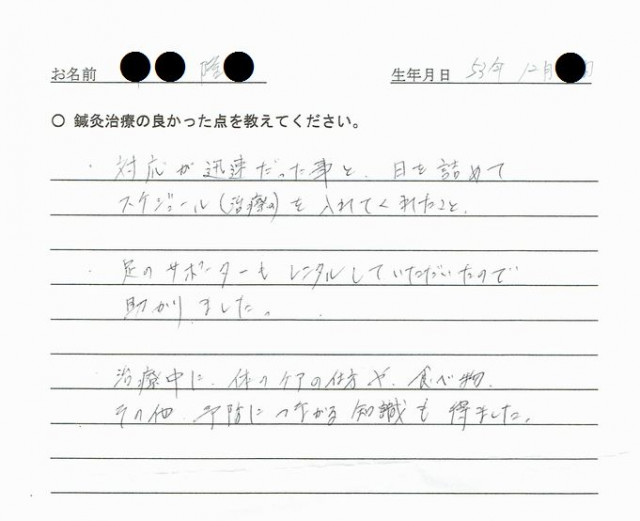 お名前 隆 生年月日 53年 12月
○ 鍼灸治療の良かった点を教えてください。
・対応が迅速だった事と、日を詰めて
スケジュール(治療の)を入れてくれたこと。
・足のサポーターもレンタルしていただいたので
助かりました。
治療中に、体のケアの仕方や、食べ物、
その他 予防につながる知識も得ました。